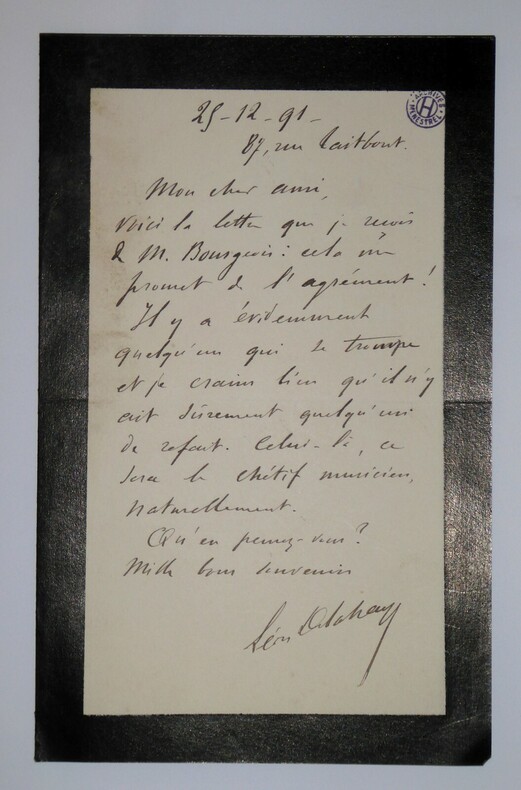 25-12-91-
ARCHIVES
H
MENESTREL
87, rue Taitbout.
Mon cher ami,
voici la lettre que je reçois
de M. Bourgeois : cela m'en
promet de l'agrément !
Il y a évidemment
quelqu'un qui se trompe
et je crains bien qu'il n'y
ait sûrement quelqu'un
de refait. Celui-là, ce
sera le chétif musicien,
naturellement.
Qu'en pensez-vous ?
Mille bons souvenirs
Léon Delahaye